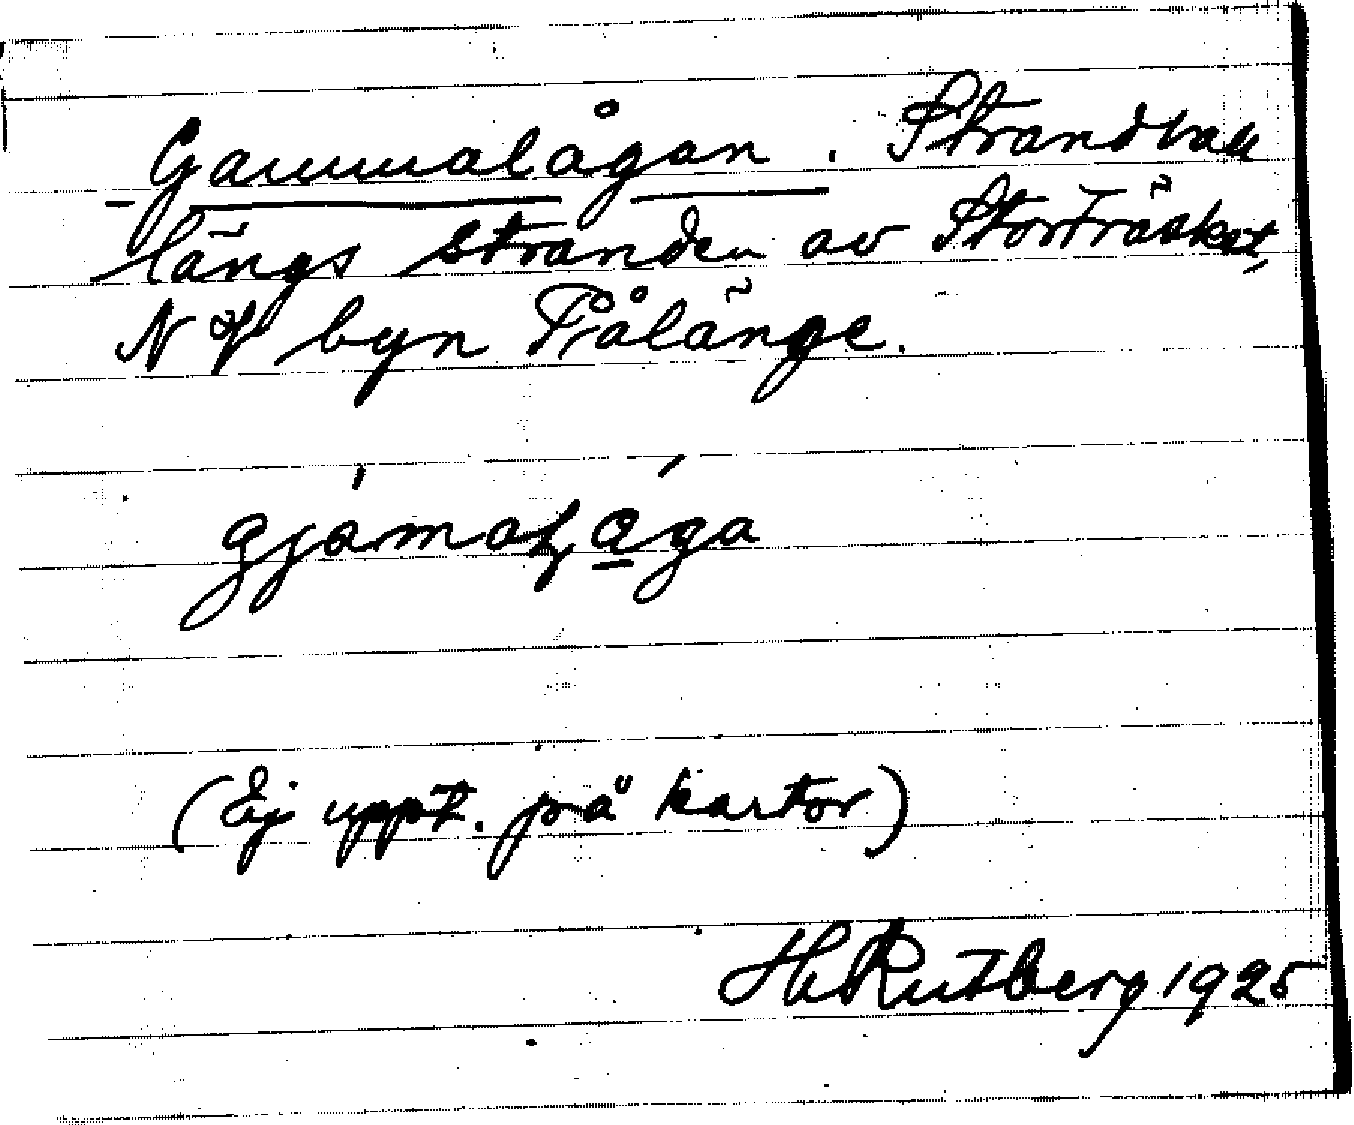 Gammalågan. Strandvall
längs stranden av Storträsket,
NV byn Pålänge.
gjámaļá̲ga
(Ej uppt. på kartor)
H. Rutberg 1925